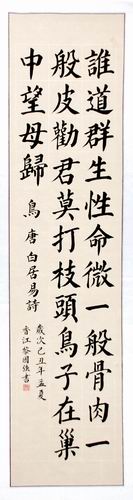 誰道群生性命微一般骨肉一
般皮勸君莫打枝頭鳥子在巢
中望母歸 鳥 唐 白居易詩
歲次己丑年孟夏
香江黎國強書